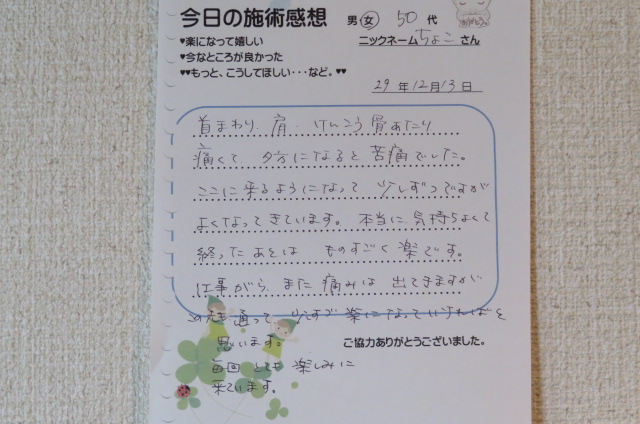 今日の施術感想 男 女 50 代
♥楽になって嬉しい
♥今なところが良かった
♥♥もっと、こうしてほしい・・・など。♥♥
ニックネーム ちょこ さん
29 年 12 月 13 日
首まわり、肩、けんこう骨あたり
痛くて 夕方になると 苦痛でした。
ここに来るようになって 少しずつですが
よくなってきています。本当に気持ちよくて
終ったあとは ものすごく楽です。
仕事がら、また痛みは 出てきますが
通って 少しずつ 楽になっていければと
思います。
ご協力ありがとうございました。
毎回 とても 楽しみに
来ています。